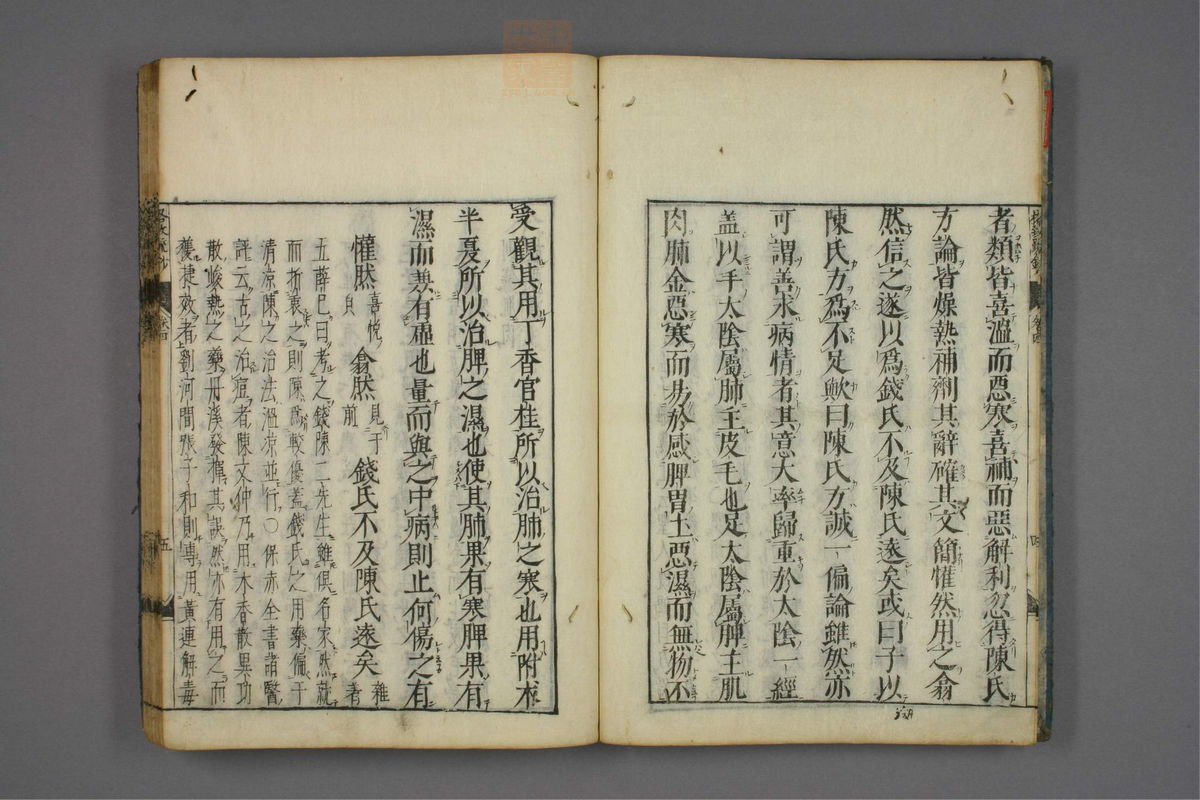 者類皆喜溫而惡寒喜補而惡解利忽得陳氏
方論皆燥熱補劑其辭確其文簡懽然用之翕
然信之遂以爲錢氏不及陳氏遠矣或曰子以
陳氏方爲不足歟曰陳氏方誠一偏論雖然亦
可謂善求病情者其意大率歸重於太陰一經
盖以手太陰屬肺主皮毛也足太陰屬脾主肌
肉肺金惡寒而易於感脾胃土惡濕而無物不
受觀其用丁香官桂所以治肺之寒也用附朮
半夏所以治脾之濕也使其肺果有寒脾果有
濕而兼有虛也量而與之中病則止何傷之有
懽然 喜悅皃 翕然 見于前 錢氏不及陳氏遠矣 雜著
五薛巳曰考之錢陳二先生雖俱名家然就
而折衷之則陳爲較優盖錢氏之用藥偏于
清凉陳之治法溫凉並行〇保赤全書諸醫
註云古之治痘者陳文仲乃用木香散異功
散峻熱之藥丹溪發揮其誤然亦有用之而
獲捷效者劉河間張子和則專用黃連解毒